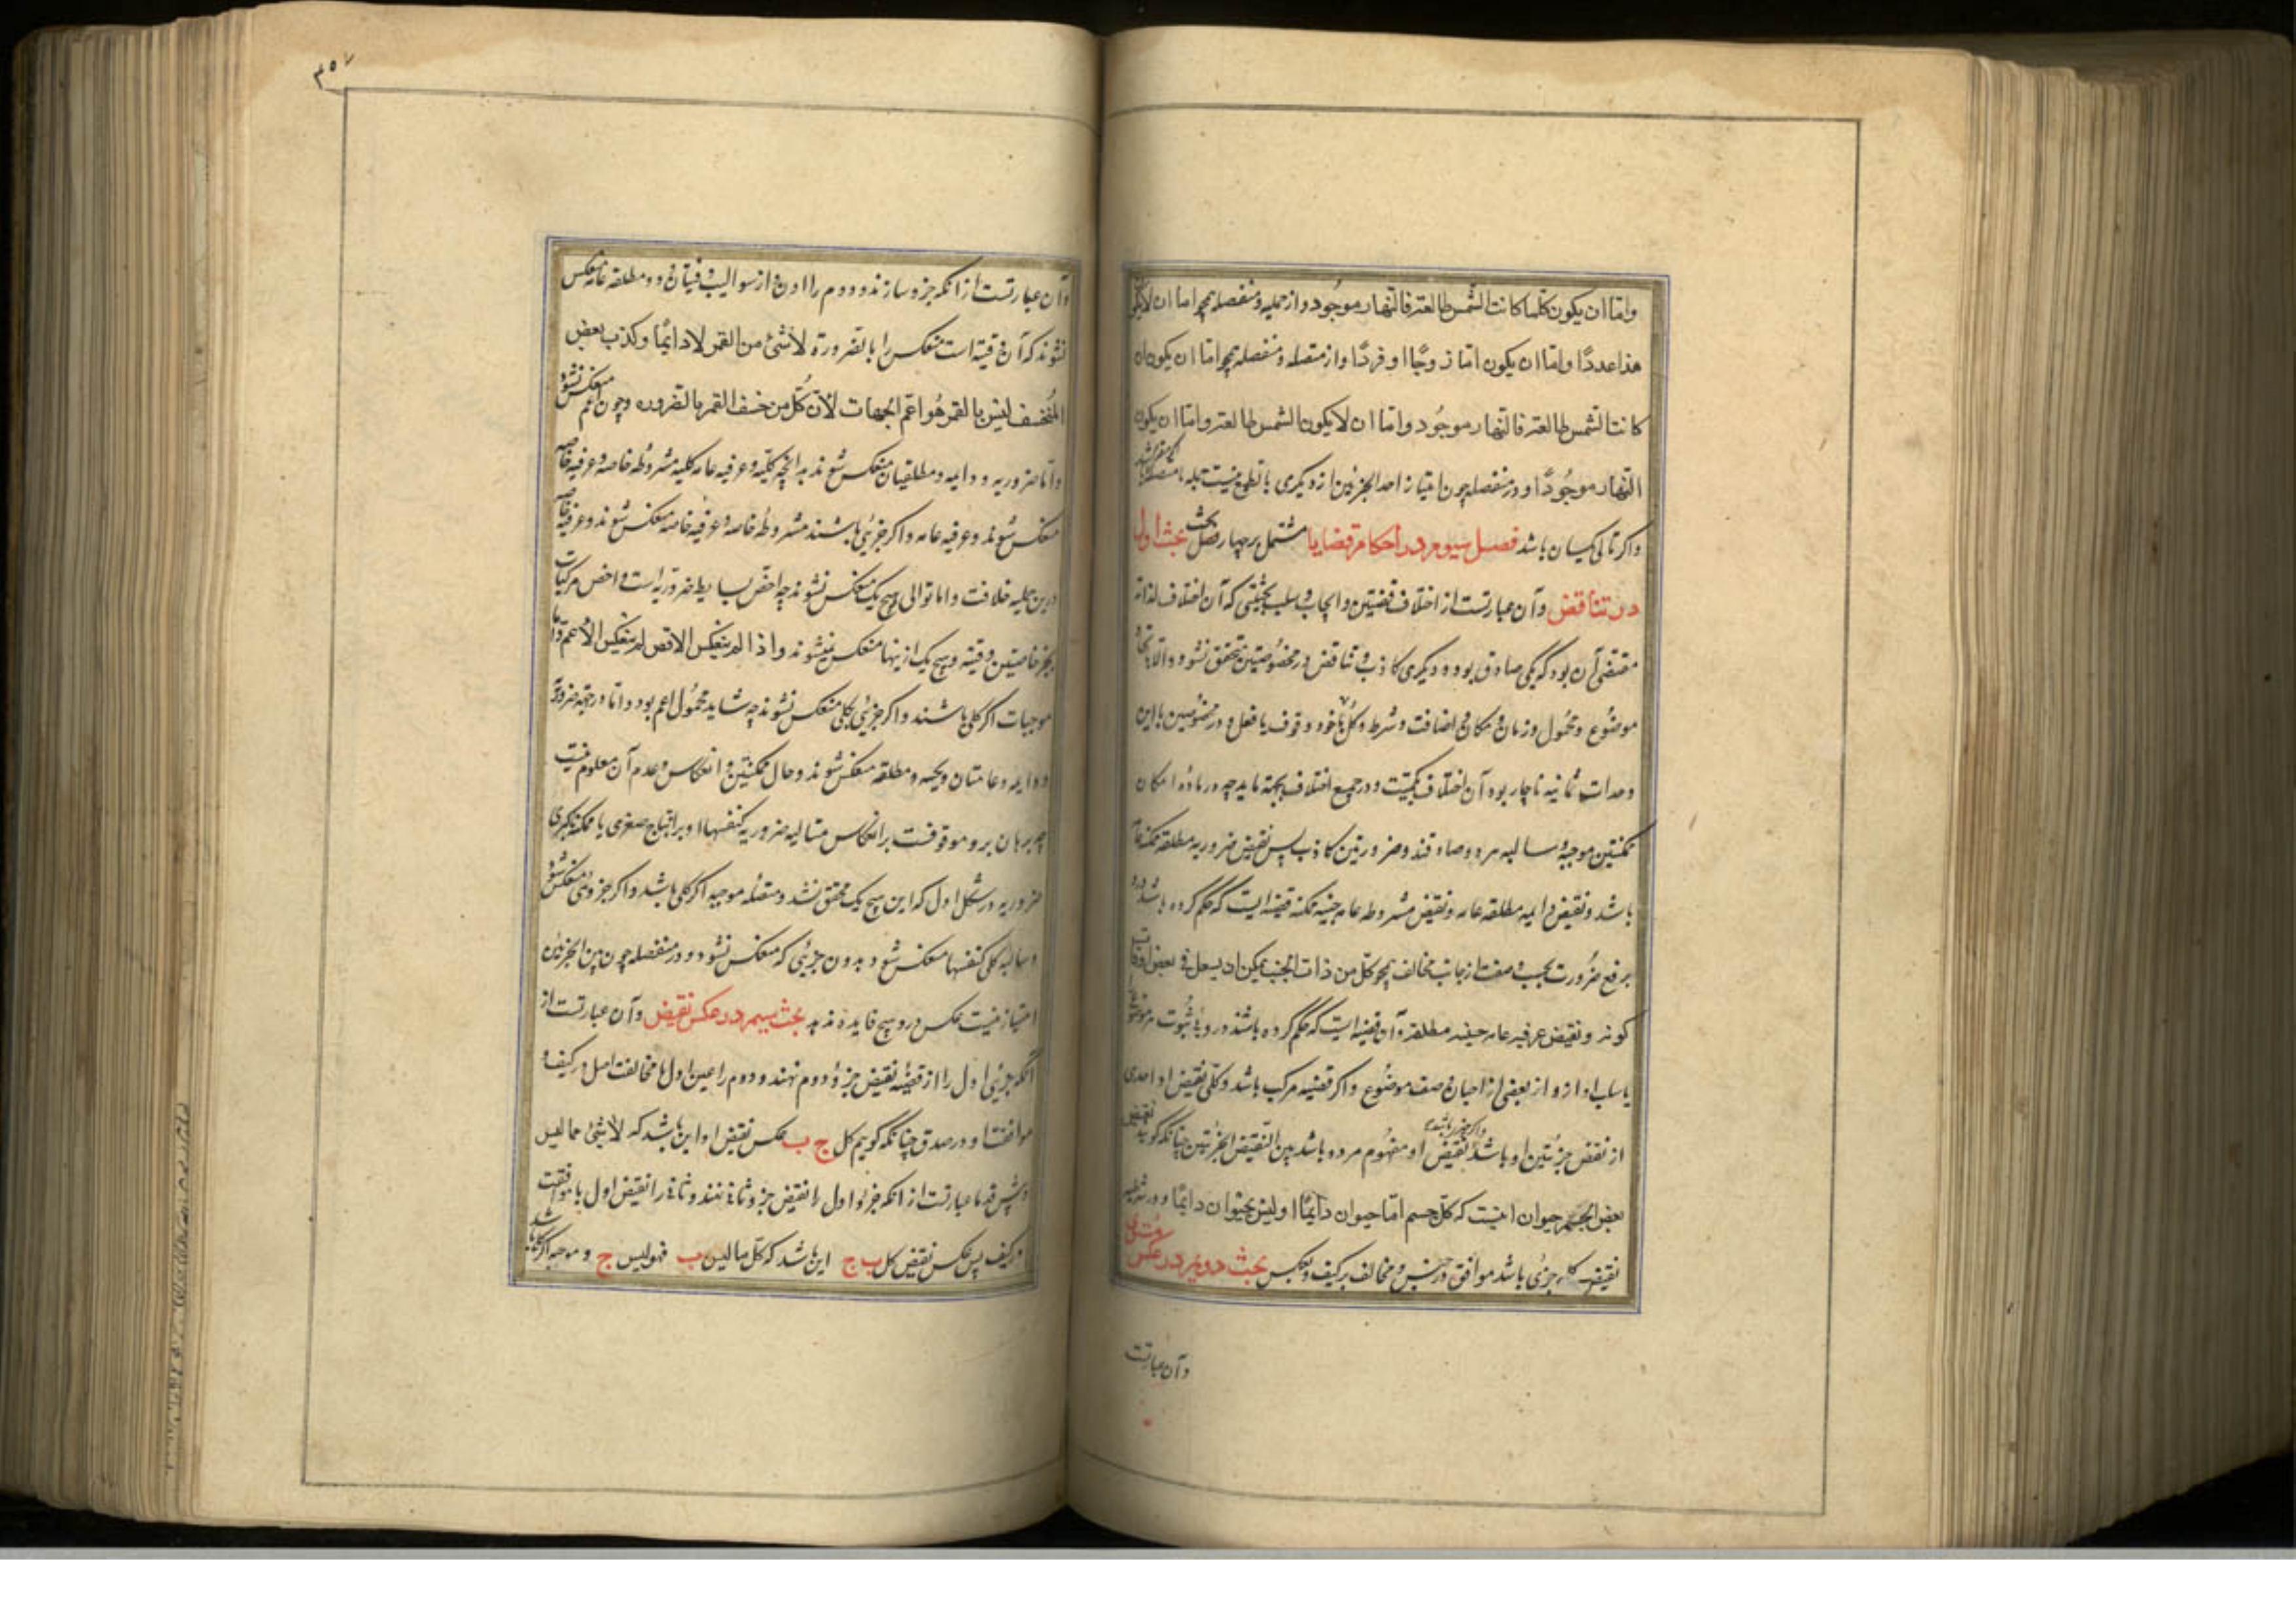 واما ان یکون کلما کانت الشمس طالعة فالنهار موجود و از حملیه و منفصله همچو اما ان لایکون
هذا عددًا واما ان یکون اما زوجًا او فردًا و از متصله و منفصله همچو اما ان یکون ان
کانت الشمس طالعة فالنهار موجود واما ان لا یکون الشمس طالعة واما ان یکون
النهار موجودًا و در منفصله چون امتیاز احد الجزئین از دیکری بالطبع نیست
واکر تالی یکسان باشد فصل سیوم در احکام قضایا مشتمل بر چهار بحث بحث اول
در تناقض وآن عبارتست از اختلاف قضیتین و ایجاب و سلب بحیثیتی که آن اختلاف لذاته
مقتضی آن بود که یکی صادق بود و دیکری کاذب و تناقض در مخصوصتین متحقق نشود و الا باتحاد
موضوع و محمول و زمان و مکان و اضافت و شرط و کل یا جزو و قوت یا فعل و در مخصوصین با این
وحدات ثمانیه ناچار بود آن اختلاف بکمیت و در جمیع اختلاف بجهة باید چه در مادۀ امکان
ممکنتین موجبه و سالبه هر دو صادقند و ضرورتین کاذب پس نقیض ضروریه مطلقه ممکنه عامه
باشد و نقیض دایمه مطلقه عامه و نقیض مشروطه عامه حینیه ممکنه قضیه ایست که حکم کرده باشند درو
برفع ضرورت بحسب وصف از جانب مخالف همچو کل من ذات الجنب یمکن ان یسعل فی بعض اوقات
کونه و نقیض عرفیه عامه حینیه مطلقه وآن قضیه ایست که حکم کرده باشند درو بثبوت
یا سلب او ازو از بعضی از احیان وصف موضوع واکر قضیه مرکب باشد و کلی نقیض او احدی
از نقیض جزئتین او باشد و نقیض او مفهوم مردد باشد بین النقیض الجزئین چنانکه کوید
بعض الجسم حیوان اینست که کل جسم اما حیوان دایمًا او لیس بحیوان دایمًا و در شرطیه
نقیض کلیه جزئی باشد موافق در جنس و مخالف در کیف و بعکس بحث دویم در عکس مستوی
وآن عبارتست
۳۵۷
وآن عبارتست از انکه جزو سازند دوم را اول و از سوالب وقتیتان و دو مطلقه عامه منعکس
نشوند که آن وقتیه است منعکس را بالضرورة لاشئ من القمر لا دایمًا وکذب بعض
المنخسف لیس بالقمر هو اعم الجهات لأن کل منخسف القمر بالضروره وچون اعم منعکس نشود
واما ضروریه و دایمه و مطلقیان منعکس شوند بدانچه کلیه و عرفیه عامه کلیه مشروطه خاصه و عرفیه خاصه
منعکس شوند و عرفیه عامه واکر جزئی باشند مشروطه خاصه و عرفیه خاصه منعکس شوند و عرفیه خاصه
درین جملیه خلافت واما توالی هیچ یک منعکس نشوند چه اخص بسایط ضروریه است و اخص مرکبات
بجز خاصیتین وقتیه و هیچ یک ازینها منعکس نمیشوند واذا لم ینعکس الاخص لم ینعکس الأعم واما
موجبات اکر کلی باشند واکر جزئی بکلی منعکس نشوند چه شاید محمول اعم بود واما در جهة ضروریه
ودایمه و عامتان و حینیه و مطلقه منعکس شوند و حال ممکنتین و انعکاس و عدم آن معلوم نیست
چه برهان برو موقوفست بر انعکاس سالبه ضروریه کنفسها او بر انتاج صغری یا ممکنه کبری
ضروریه در شکل اول که این هیچ یک محقق نشد و متصله موجبه اکر کلی باشد واکر جزوی منعکس شود
وسالبه کلی کنفسها منعکس شود و بدون جزئی که منعکس نشود و در منفصله چون بین الجزئین
امتیاز نیست عکس درو هیچ فایده ندهد بحث سیم در عکس نقیض وآن عبارتست از
انکه جزئی اول را از قضیه نقیض جزو دوم نهند و دوم را عین اول با مخالفت اصل در کیف و
موافقتا و در صدق چنانکه کویم کل ج ب عکس نقیض او این باشد که لا شئ مما لیس
وپیش قدما عبارتست از انکه جزو اول را نقیض جزو ثانی نهند و ثانی را نقیض اول با موافقت
در کیف پس عکس نقیض کل ب ج این باشد که کل ما لیس ب فهو لیس ج و موجبه اکر کلی باشد